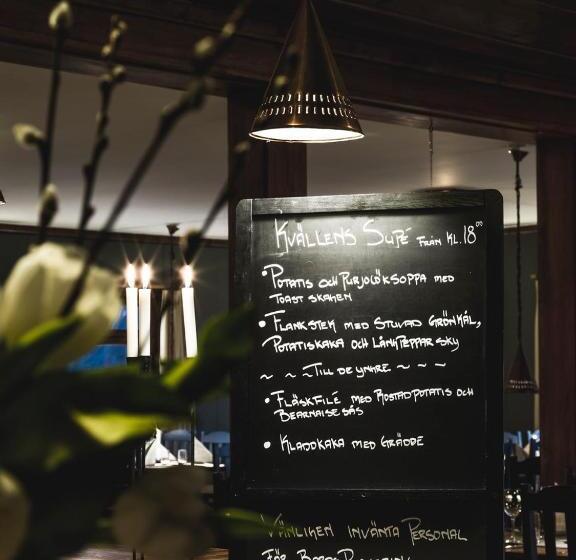 KVÄLLENS SUPÉ FRÅN KL.18⁰⁰
• POTATIS OCH PURJOLÖKSOPPA MED
TOAST SKAGEN
• FLANKSTEK MED STUVAD GRÖNKÅL,
POTATISKAKA OCH LÅNGPEPPAR SKY
~ ~ ~ TILL DE YNGRE ~ ~ ~
• FLÄSKFILÉ MED ROSTAD POTATIS OCH
BEARNAISESÅS
• KLADDKAKA MED GRÄDDE
VÄNLIGEN INVÄNTA PERSONAL
FÖR BORDSPLACERING